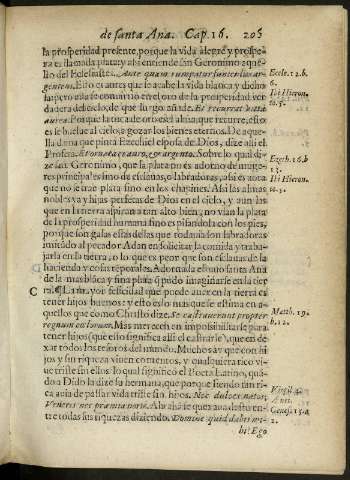 de santa Ana. Cap. 16. 205
la prosperidad presente, porque la vida alegre y prospe-
ra es llamada plata: y assi entiende san Geronimo aque-
llo del Eclesiastes. Ante quam rumpatur funiculus ar-
genteus. Esto es antes que se acabe la vida blanca y dicho
Eccle. 12. b.
6.
Ibi Hieron.
to. 5.
dadera del cielo, de que luego añade. Et recurrat vitta
aurea. Porque la toca de oro es el alma, que recurre, esto
es se buelue al cielo, a gozar los bienes eternos. De aque-
lla dama que pinta Ezechiel esposa de Dios, dize assi el
Profeta. Et ornata es auro, & argento. Sobre lo qual di-
ze san Geronimo, que la plata no es adorno de muge-
res principales sino de esclauas, o labradoras, assi es aora
que no se trae plata sino en los chapines. Assi las almas
nobles ya y hijas perfetas de Dios en el cielo, y aun las
que en la tierra aspiran a tan alto bien, no vsan la plata
de la prosperidad humana sino es pisandola con los pies,
porque son galas essas de las que todauia son labradoras
imitando al pecador Adan en solicitar la comida y traba-
jarla en la tierra, o lo que es peor que son esclauas de la
hacienda y cosas temporales. Adornada estuuo santa Ana
de la mas blanca y fina plata que pudo imaginarse en la tier
Ezech. 16. b
13.
Ibi Hieron.
to. 5.
C
felicidad que puede auer en la tierra es
tener hijos buenos: y esto es lo mas que se estima en a-
quellos que como Christo dize. Se castrauerunt propter
regnum caelorum. Mas merecen en impossibilitarse para
tener hijos (que esto significa assi el castrarse) que en de-
xar todos los tesoros del mundo. Mucho va y que con hi
jos y sin riqueza viuen contentos, y qualquiera rico vi-
ue triste sin ellos: lo qual significò el Poeta Latino, quan-
do a Dido la dize su hermana, que porque siendo tan ri-
ca auia de passar vida triste sin hijos. Nec dulces natos,
Veneris nec praemia noris.
tre todas sus riquezas diziendo. Domine quid dabis mi-
Matth. 19.
b. 12.
Virgil. 4.
Genes. 15. a
2.
hi? Ego